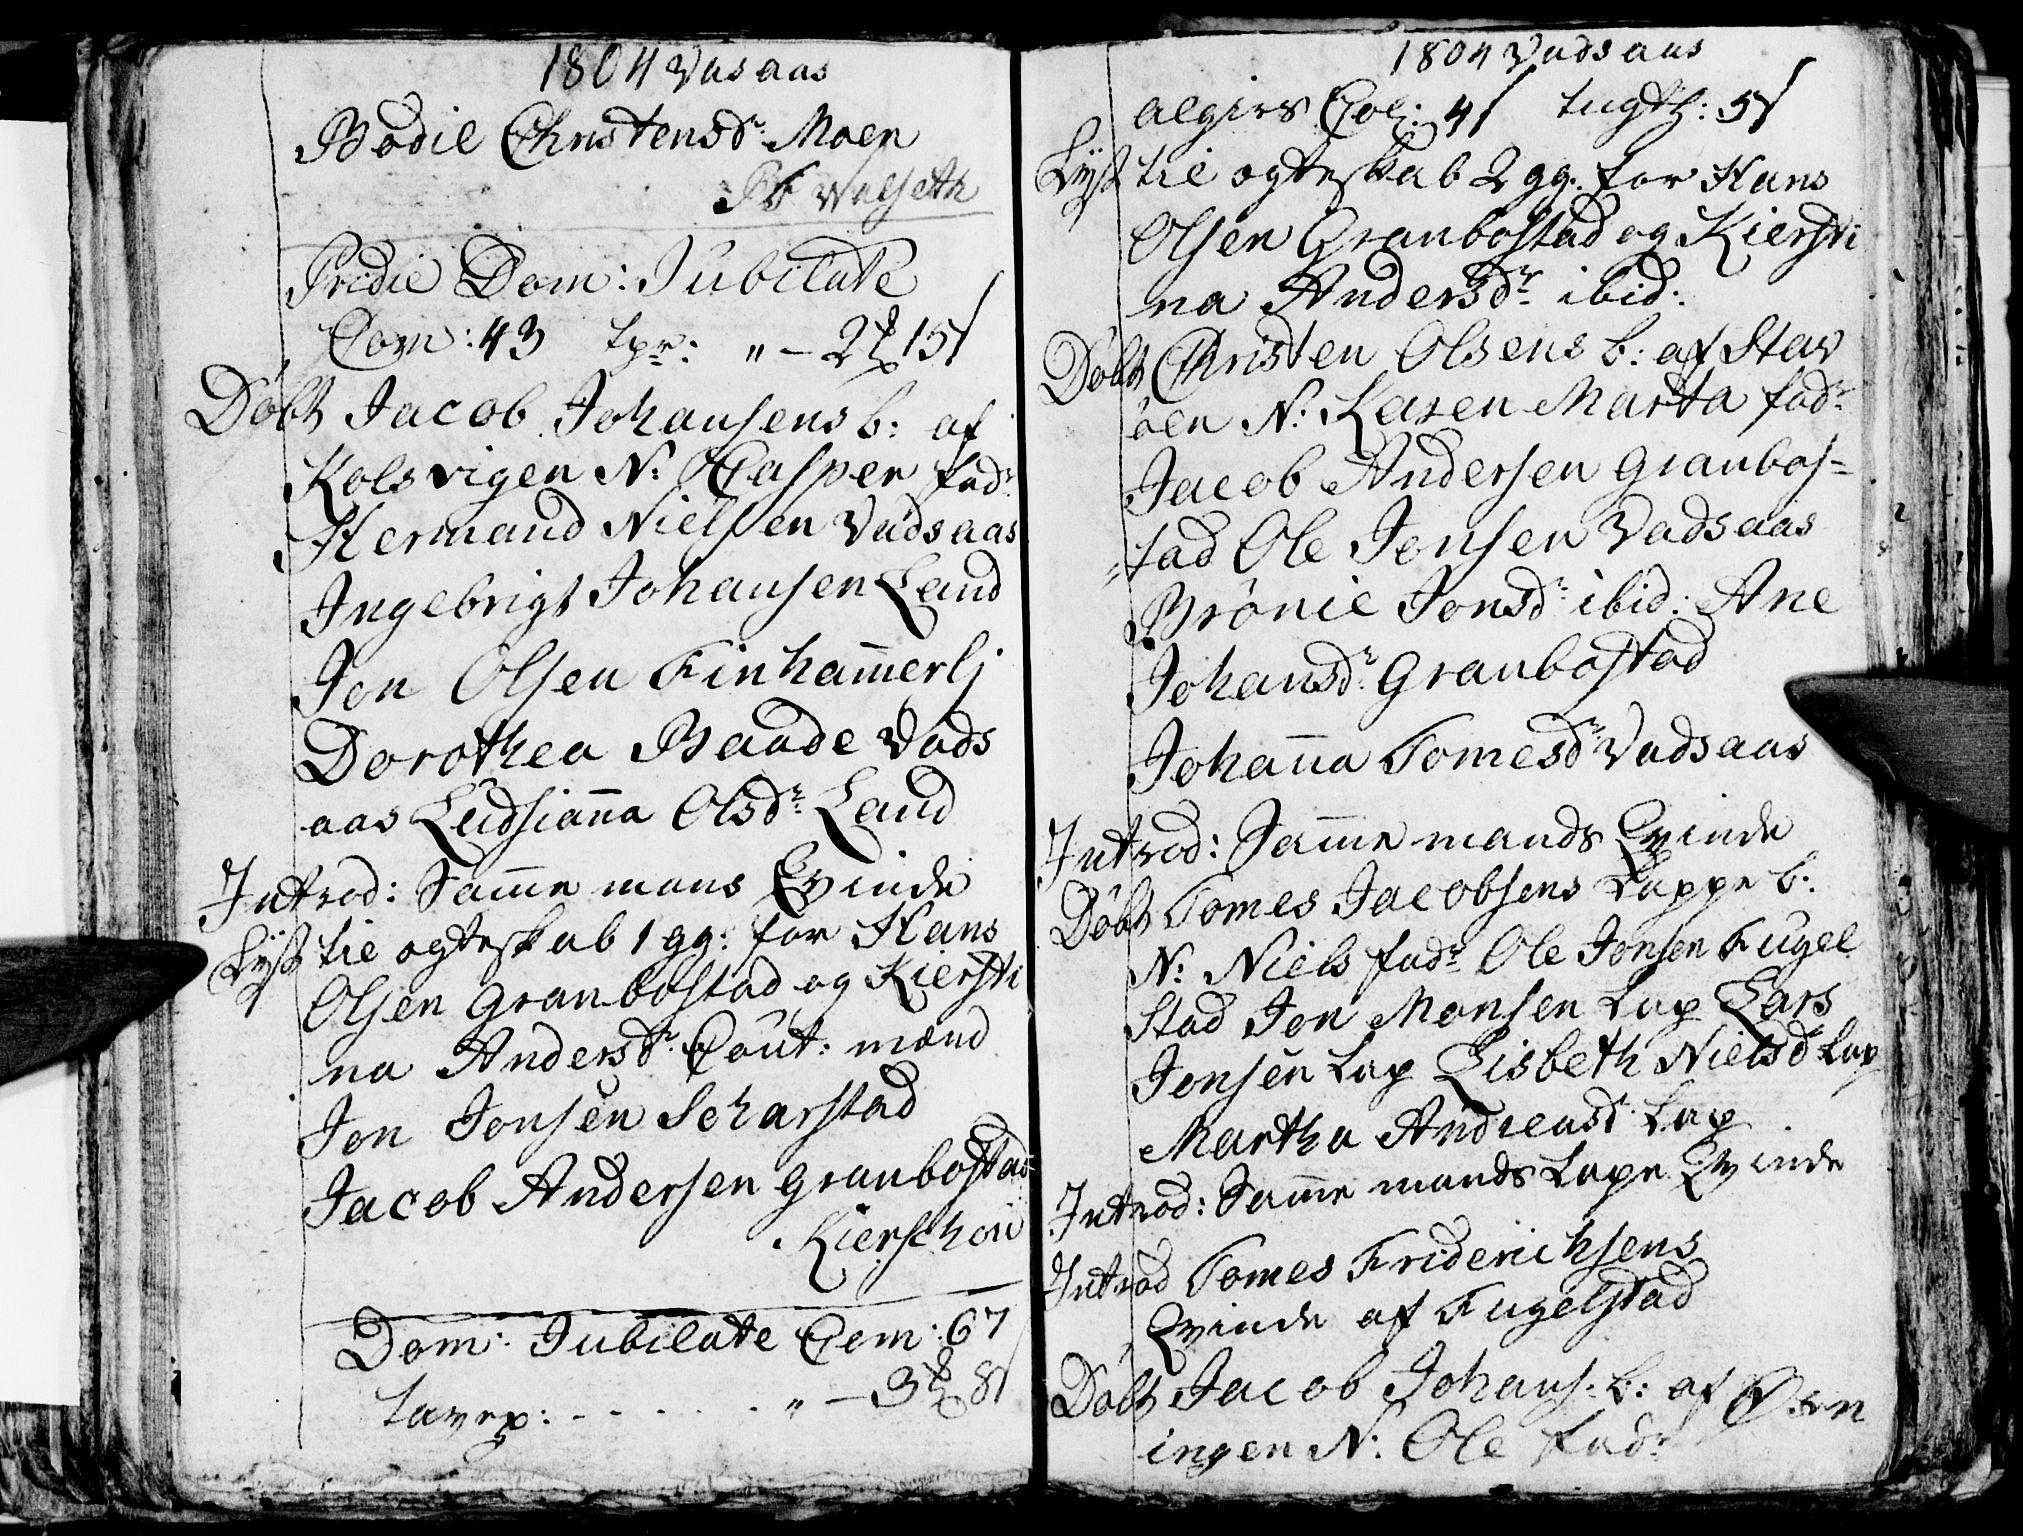 1804 Vasaas
Bodil Christensdr. Moen
Valseth
Pridie Dom: Jubilate
Com: 43 tpr: " – 2 15
Döbt Jacob Johansens b: af
Kolsvigen N: Casper fadr.
Hermand Nielsen Vadsaas
Ingebrigt Johansen Land
Jon Olsen Finhammerlj
Dorothea Baade Vads
aas Ludsianna Olsdr. Land
Introd: Samme mans Qvinde
Lyst til ogteskab 1 gg: for Hans
Olsen Granbostad og Kiersti
na Andersdr. Caut: mænd
Jon Jonsen Scharstad
Jacob Andersen Granbostad
Kierschou
Dom: Jubilate Com: 67
tavep: - - - - - - " – 3 8
1804 Vadsaas
algirs Col: 4 tugth: 5
Lyst til ogteskab 2 gg. for Hans
Olsen Granbostad og Kiersti
na Andersdr. ibid:
Döbt Christen Olsens b: af Stav
öen N: Karen Marta fadr.
Jacob Andersen Granbos=
=tad Ole Jonsen Vadsaas
Brönil Jonsdr. ibid: Ane
Johansdr. Granbostad
Johanna Tomesdr. Vadsaas
Introd: Samme mands Qvinde
Döbt Tomes Jacobsens Lappe b:
N: Niels fadr. Ole Jonsen Fugel
stad Jon Monsen Lap Lars
Jonsen Lap Lisbeth Nielsd Lap
Martha Andreasd. Lap
Introd: Samme mands Lape Qvinde
Introd Tomes Friderichsens
Qvinde af Fugelstad
Döbt Jacob Johans: b: af Øren
ingen N: Ole fadr.